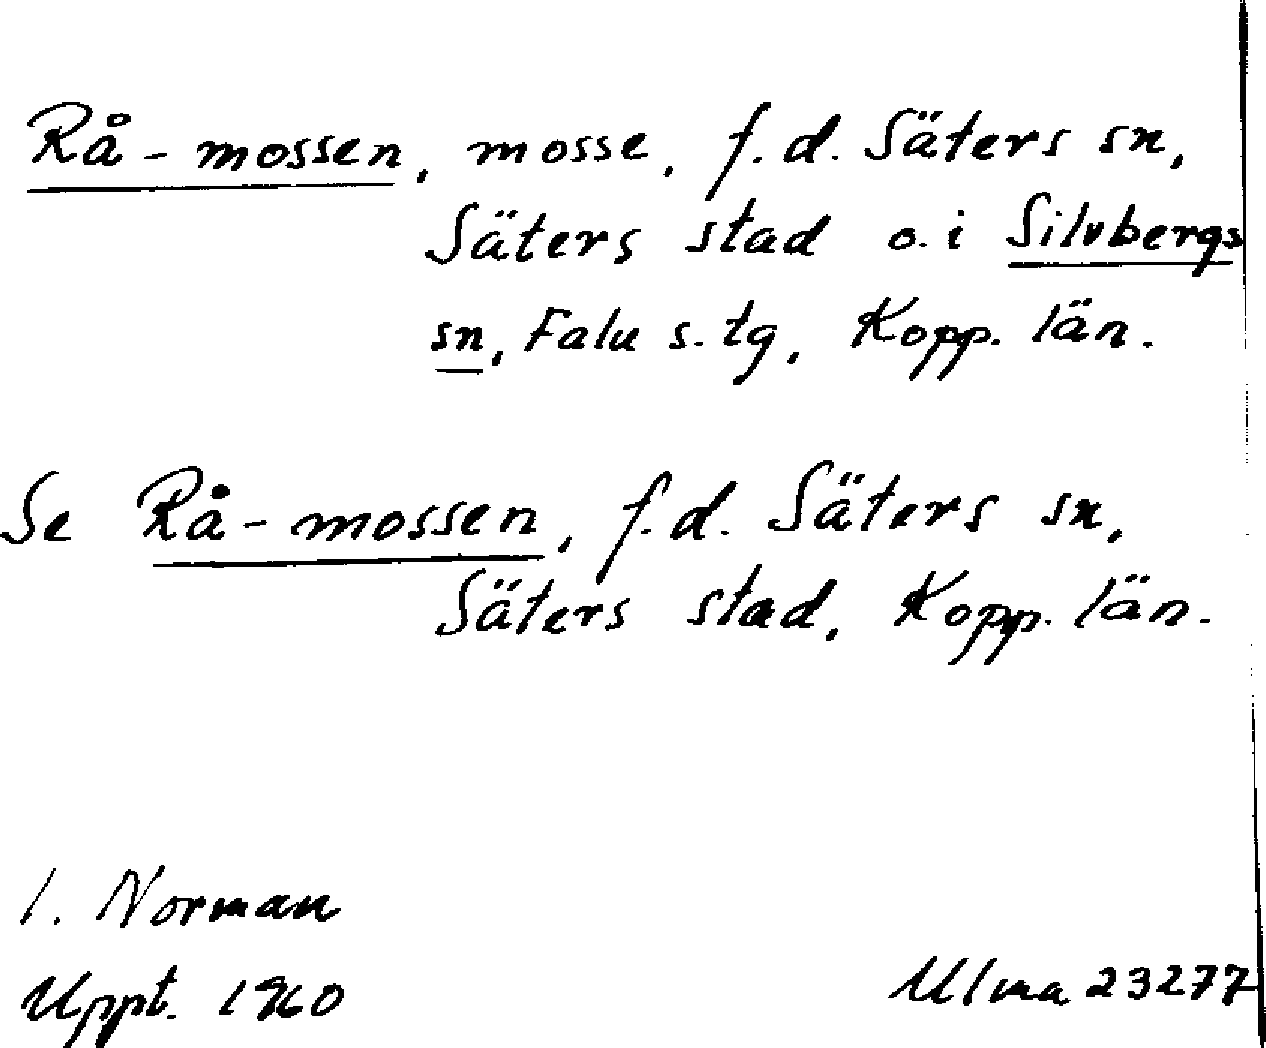 Rå-mossen, mosse, f.d. Säters sn,
Säters stad o. i Silvbergs
sn, Falu s. tg, Kopp. län.
Se Rå-mossen, f.d. Säters sn,
Säters stad, Kopp. län.
I. Norman
Uppt. 1960
Ulma 23277